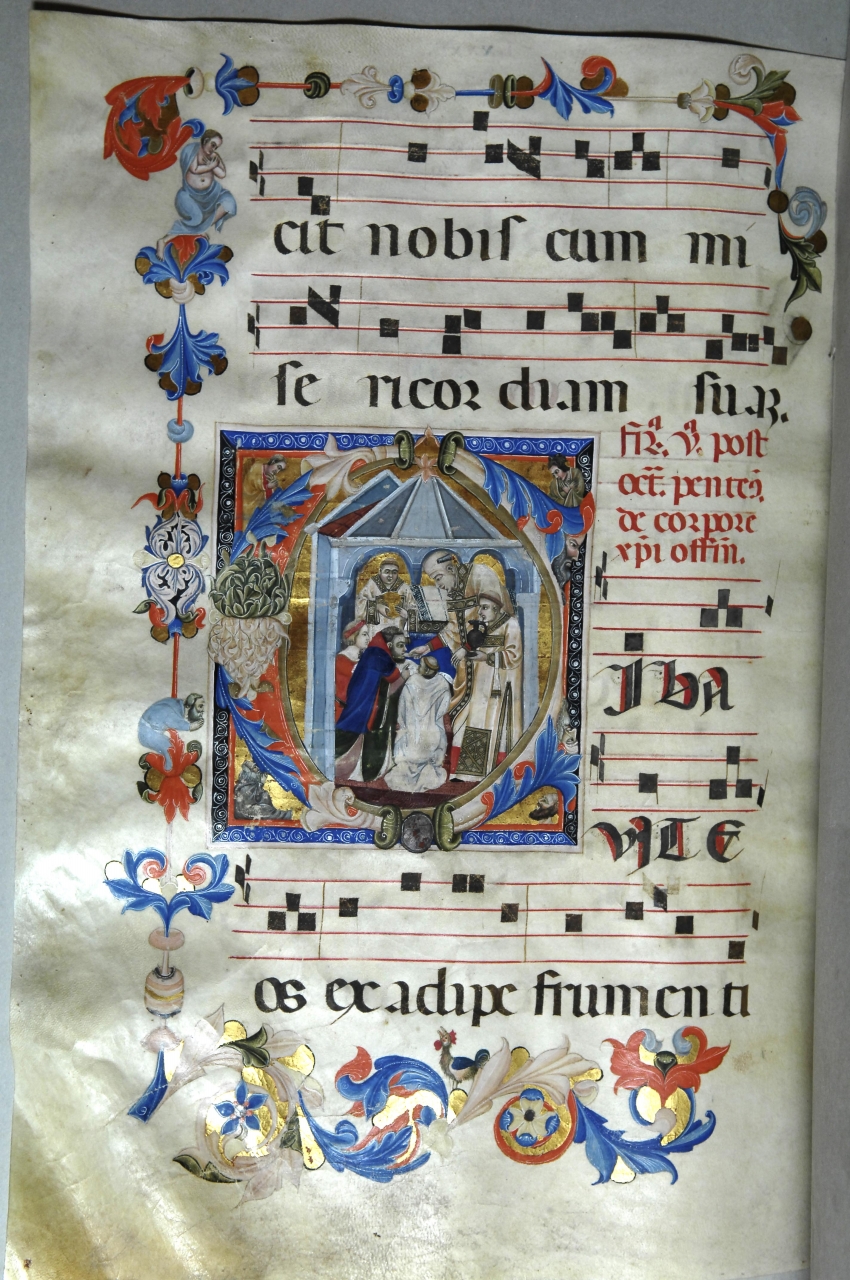 cit nobis cum mi
se ricor diam suaꝶ.
fiꝶ. v. post
oct. pentec.
de corpore
xpi offm.
CIBA
VITE
os ex adipe frumen ti